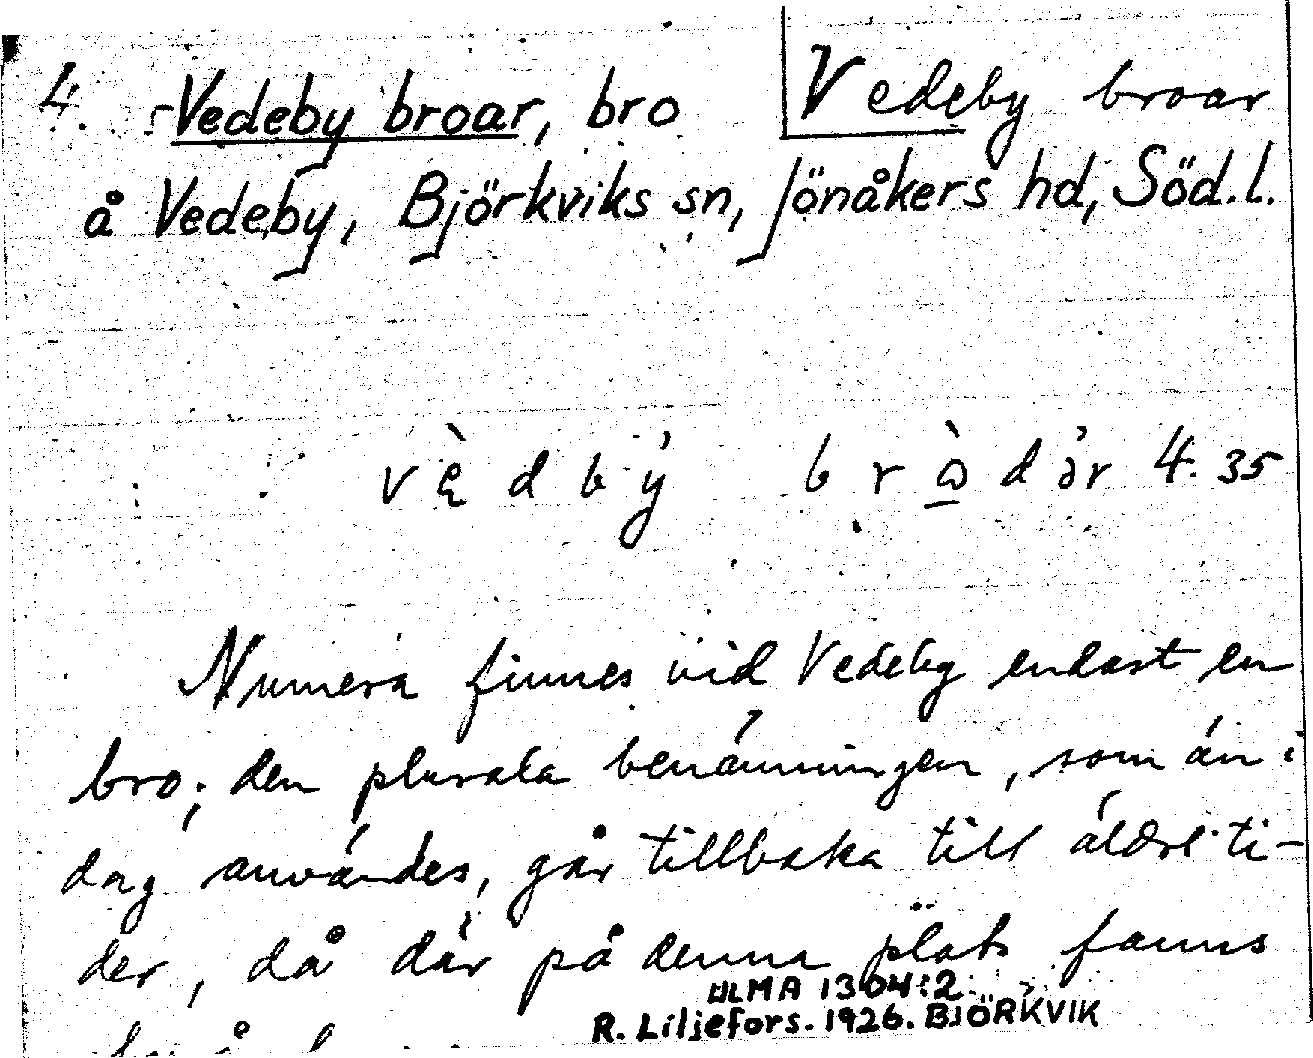 4. Vedeby broar, bro
Vedeby broar
å Vedeby, Björkviks sn, Jönåkers hd, Söd.l.
Numera finnes vid Vedeby endast en
bro; den plurala benämningen, som än i
dag användes, går tillbaka till äldre ti-
der, då där på denna plats fanns
ULMA 1304:2
R. Liljefors. 1926. BJÖRKVIK